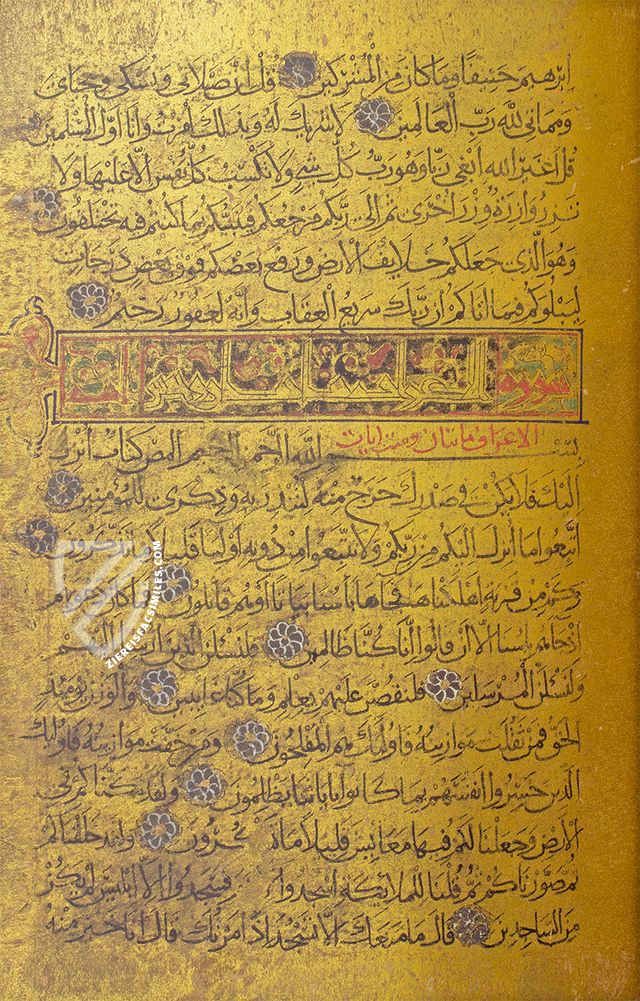 ابرهيم حنيفا وما كان من المشركين قل ان صلاتي ونسكي ومحياي
ومماتي لله رب العالمين لا شريك له وبذلك امرت وانا اول المسلمين
قل اغير الله ابغي ربا وهو رب كل شي ولا تكسب كل نفس الا عليها ولا
تزر وازرة وزر اخرى ثم الى ربكم مرجعكم فينبئكم بما كنتم فيه تختلفون
وهو الذي جعلكم خلايف الارض ورفع بعضكم فوق بعض درجات
ليبلوكم فيما اتاكم ان ربك سريع العقاب وانه لغفور رحيم
سورة
الاعراف مايتان وست ايات
بسم الله الرحمن الرحيم المص كتاب انزل
اليك فلا يكن في صدرك حرج منه لتنذر به وذكرى للمؤمنين
اتبعوا ما انزل اليكم من ربكم ولا تتبعوا من دونه اوليا قليلا ما تذكرون
وكم من قرية اهلكناها فجاها باسنا بياتا او هم قايلون فما كان دعواهم
اذ جاهم باسنا الا ان قالوا انا كنا ظالمين فلنسلن الذين ارسل اليهم
ولنسلن المرسلين فلنقصن عليهم بعلم وما كنا غايبين والوزن يوميذ
الحق فمن ثقلت موازينه فاوليك هم المفلحون ومن خفت موازينه فاوليك
الذين خسروا انفسهم بما كانوا باياتنا يظلمون ولقد مكناكم في
الارض وجعلنا لكم فيها معايش قليلا ما تشكرون ولقد خلقناكم
ثم صورناكم ثم قلنا للملايكة اسجدوا فسجدوا الا ابليس لم يكن
من الساجدين قال ما منعك الا تسجد اذ امرتك قال انا خير منه
ZIEREISFACSIMILES.COM